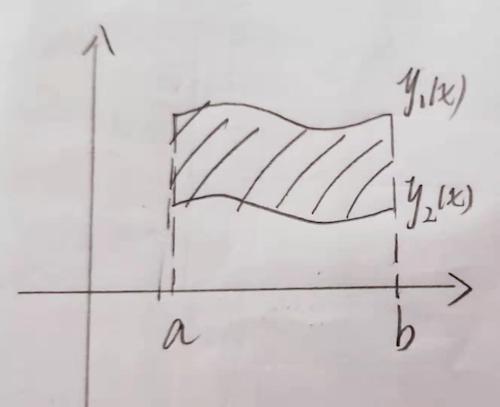 y₁(x)
y₂(x)
a b